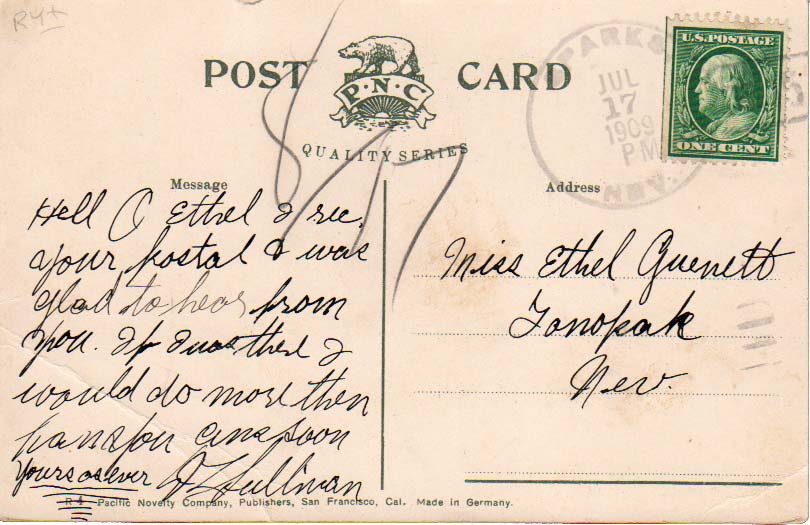 R4+
POST CARD
P·N·C
QUALITY SERIES
SPARKS
JUL
17
1909
PM
NEV.
U.S. POSTAGE
ONE CENT
Message
Hell O Ethel I rec.
your postal & was
glad to hear from
you. If I was there I
would do more then
you soon
Yours as ever J L Sullivan
Address
Miss Ethel Guenett
Tonopah
Nev.
R 4 Pacific Novelty Company, Publishers, San Francisco, Cal. Made in Germany.